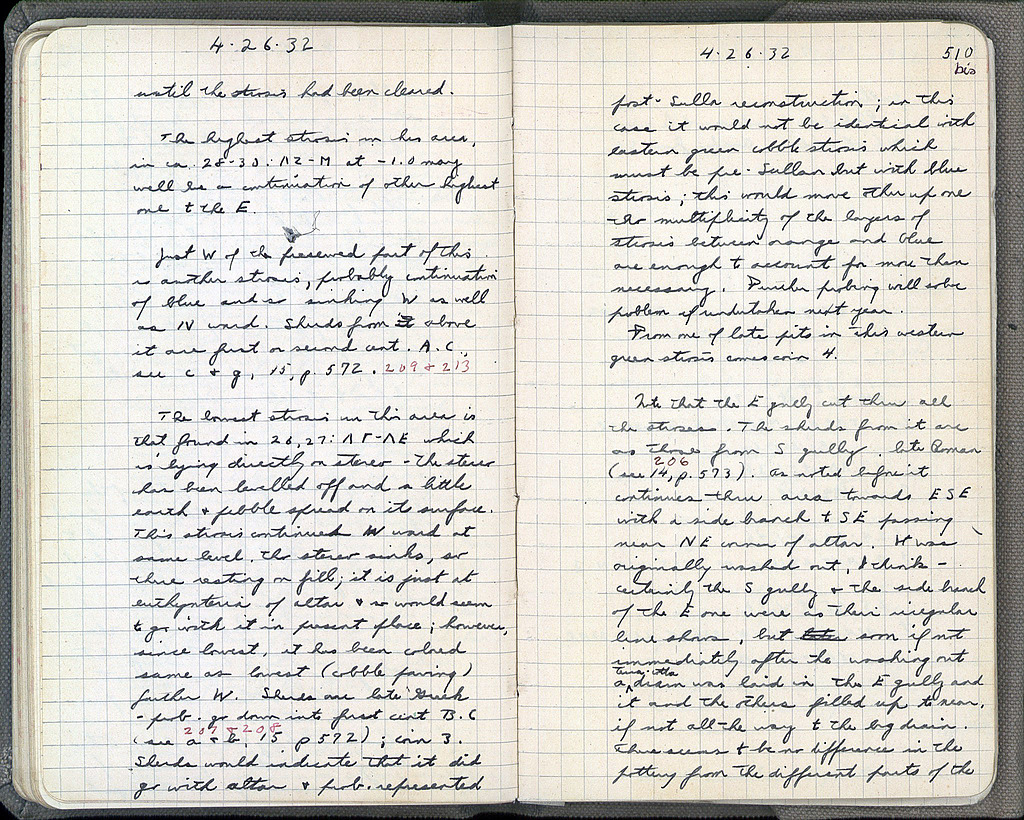 4·26·32
until the strosis had been cleared.
The highest strosis in this area,
in ca. 28-30:ΛΖ-Μ at -1.0 may
well be a continuation of other highest
one to the E.
Just W of the preserved part of this
is another strosis, probably continuation
of blue and is sinking W as well
as N ward. Sherds from it above
it are first or second cent. A.C.,
see c & g, 15, p. 572. 209 & 213
The lowest strosis in this area is
that found in 26,27:ΛΓ-ΛΕ which
is lying directly on stereo - the stereo
has been levelled off and a little
earth & pebble spread on its surface.
This strosis continued W ward at
same level. The stereo sinks, so
there resting on fill; it is just at
euthynteria of altar & so would seem
to go with it in present place; however,
since lowest, it has been colored
same as lowest (cobble paving)
farther W. Sherds are late Greek
- prob. go down into first cent B.C
207 & 208
(see a & b, 15 p 572); coin 3.
Sherds would indicate that it did
go with altar & prob. represented
4·26·32
510
bis
post-Sulla reconstruction; in this
case it would not be identical with
eastern green cobble strosis which
must be pre-Sullan but with blue
strosis; this would move other up one
the multiplicity of the layers of
strosis between orange and blue
are enough to account for more than
necessary. Further probing will solve
problem if undertaken next year.
From one of late pits in this western
green strosis comes coin 4.
Note that the E gully cut thru all
the stroses. The sherds from it are
as those from S gully, late Roman
206
(see 14, p. 573). As noted before it
continues thru area towards ESE
with a side branch to SE passing
near NE corner of altar. It was
originally washed out, I think -
certainly the S gully & the side branch
of the E one were as their irregular
line shows, but soon if not
immediately after the washing out
terra cotta
a drain was laid in the E gully and
it and the others filled up to near,
if not all the way to the big drain.
There seems to be no difference in the
pottery from the different parts of the